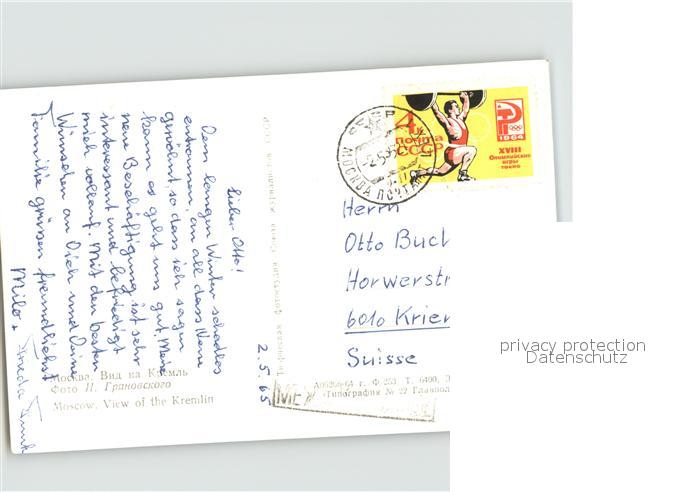 2.5.65
Lieber Otto!
Dem langen Winter schadlos
entronnen, an all das Neue
gewöhnt, so dass ich sagen
kann es geht uns gut. Meine
neue Beschäftigung ist sehr
interessant und befriedigt
mich vollauf. Mit den besten
Wünschen an Dich und Deine
Familie grüssen freundlichst
Milo +
4
ПОЧТА
СССР
1964
XVIII
Олимпийские
игры
токио
СССР
МОСКВА ПОЧТАМТ
Herrn
Otto Buch
Horwerstr
6010 Krien
Suisse
privacy protection
Datenschutz
Москва. Вид на Кремль
Фото Н. Грановского
Moscow. View of the Kremlin
Ф. 253 Т. 6400,
Типография № 27 Главпол